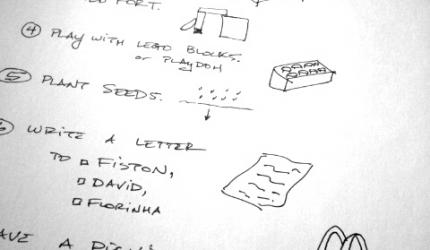 FORT.
4 PLAY WITH LEGO BLOCKS.
OR PLAYDOH
5 PLANT SEEDS.
6 WRITE A LETTER
TO FISTON,
DAVID,
FLORINHA
A